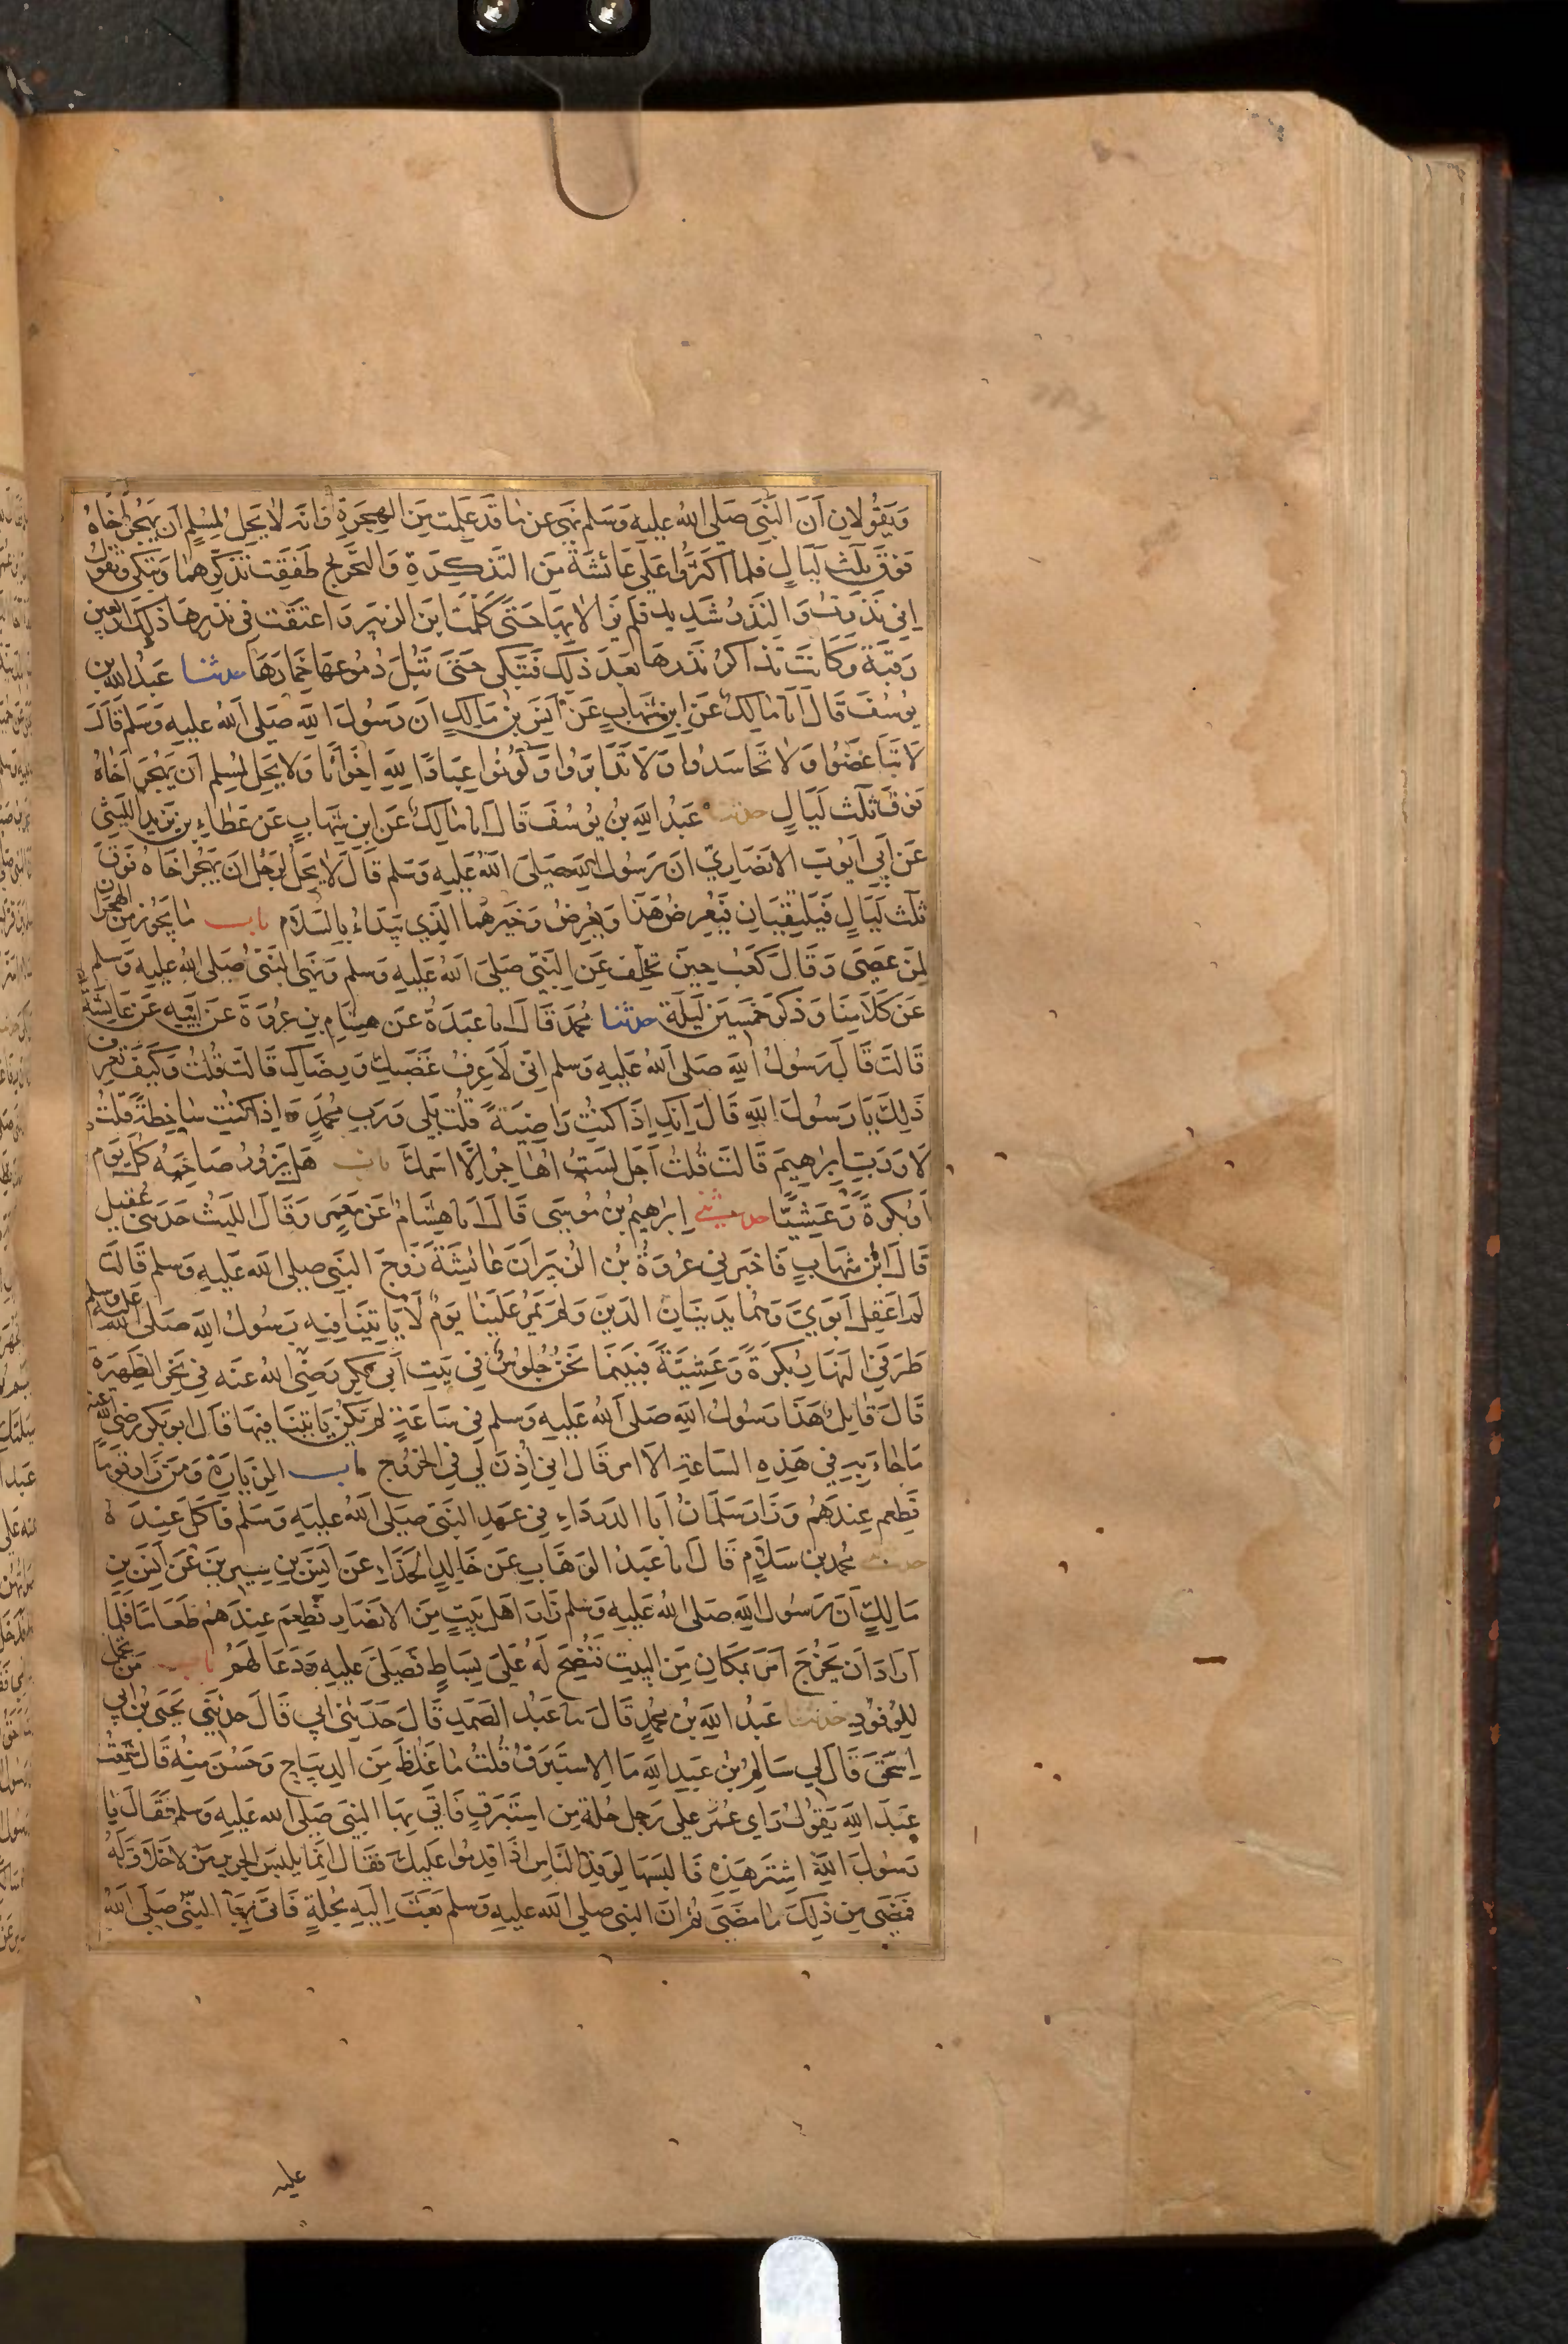 وَيَقُولَانِ اَنَ النَّبَى صَلى اللهُ عليه وَسَلم نهَى عَن مَا قَد عَلِمتِ مِنَ الهِجرَةِ وَانهُ لَا يَحِلُ لِمُسِلم اَن يَهجُرَ اَخَاهُ
فَوقَ ثلٰث لَيَالٍ فَلما اَكثَرُوا عَلى عَائشَةَ مِنَ التَذكِرَةِ وَالتَحريج طَفِقَت تُذَكِّرُهمَا وَتبكى وتقولُ
اِنى نَذَرتُ وَالنَذرُ شَدِيد فلم يَزَالَا بِهَا حَتى كَلَّمَت ابنَ الزبَيرِ وَاعتَقَت فى نَذرِهَا ذلِكَ اَربعِين
رَقَبَة وَكَانَت تذكرُ نَذرَهَا بَعدَ ذلِكَ فَتبكى حَتى تَبُلَ دُمُوعهَا خِمَارَهَا حدثنا عَبدُ اللهِ بن
يوسُفَ قَالَ انا مَالِك عَن ابن شِهَابٍ عَن انَسِ بنِ مَالِكٍ اَن رَسُولَ اللهِ صَلى اللهُ عليه وَسَلم قَالَ
لَا تَبَاغَضُوا وَلَا تَحَاسَدُوا وَلَا تَدَابَرُوا وَكُونُوا عِبَادَ اللهِ اِخوَانًا وَلَا يحِل لمسِلم اَن يَهجُرَ اَخَاهُ
فَوقَ ثلٰث لَيَالٍ حدثنا عَبدُ اللهِ بن يوسُفَ قَالَ انا مَالِكٌ عَن ابنِ شِهَابٍ عَن عَطَاءِ بنِ يَزيدَ اللَيثى
عَن اَبِى اَيوبَ الانصَارِىّ اَن رَسُولَ اللهِ صَلى اللهُ عَليه وَسَلم قَالَ لَا يَحِلُ لِرَجُل اَن يَهجُرَ اخَاهُ فَوقَ
ثلٰث لَيَالٍ فَيَلتَقِيَانِ فَيُعرِضُ هَذَا وَيُعرِضُ وَخَيرهُمَا الذِي يَبدَاءُ بِالسَلَام باب مَا يَجُوز مِنَ الهجران
لِمَن عَصَى وَقَالَ كَعب حِينَ تخلف عَن النَبى صَلى اللهُ عَليه وَسَلم وَنَهَى النَبىّ صَلى اللهُ عَليه وَسلم
عَن كَلَامِنَا وَذكَرَ خَمسِين لَيلَة حدثنا مُحمد قَالَ انا عَبدَةُ عَن هِشَام بنِ عُروَةَ عَن اَبِيهِ عَن عَائِشَة
قَالَت قَالَ رَسُولُ اللهِ صَلى اللهُ عَليه وَسلم اِنى لَاَعرِفُ غَضَبكِ وَرِضَاكِ قَالَت قُلتُ وَكَيفَ تعرِف
ذَلِكَ يَا رَسُولَ اللهِ قَالَ اِنَكِ اِذَا كنتِ رَاضِيَةً قُلتِ بَلى وَرَبِ محُمدٍ وَاِذَا كنتِ سَاخِطَةً قُلتِ
لَا وَرَبِ اِبرَاهِيمَ قَالَت قُلتُ اَجَل لَستُ اُهَاجرُ اِلَّا اسمَكَ باب هَل يَزُورُ صَاحِبَهُ كلَ يَوم
اَو بُكرَةً وَعَشِيًّا حدثنى اِبرَاهِيمُ بنُ مُوسَى قَالَ انا هِشَامٌ عَن مَعمَرٍ وَقَالَ اللَيث حَدثَنى عُقَيل
قَالَ ابن شِهَابٍ فَاخبَرنى عُروَةُ بنُ الزبَيرِ اَنَ عَائِشَةَ زَوجَ النَبى صلى الله عليه وسلم قَالَت
لَم اَعقِل اَبَوَيَّ وَهُمَا يَدِينَانِ الدِينَ وَلَم يَمُر عَلَينَا يَومٌ لَا يَاتِينَا فِيه رَسُولُ اللهِ صَلى اللهُ عَليهِ وسلم
طَرَفَىِ النَهَار بُكرَةً وَعَشِيَةً فَبَينَمَا نَحنُ جُلُوسٌ فى بَيتِ اَبى بَكرٍ رَضِى اللهُ عَنه فى نحر الظَهِيرَةِ
قَالَ قَائِل هَذَا رَسُولُ اللهِ صَلى اللهُ عَليه وَسلم فى سَاعَةٍ لم يَكُن يَاتِينَا فِيهَا قَالَ ابو بَكر رضى اللهُ عنه
مَا جَاءَ بِهِ فى هَذِهِ السَاعَةِ اِلا امر قَالَ انى اُذِنَ لِى فى الخرُوج باب الزِيَارَة وَمَن زَارَ قَومًا
فَطَعِمَ عِندَهُم وَزَارَ سَلمَانُ اَبَا الدَردَاءِ فى عَهدِ النَبىّ صَلى اللهُ عليهِ وَسَلم فَاَكَلَ عِندَهُ
حدثنى محُمد بن سَلَام قَالَ انا عَبدُ الوَهَابِ عَن خَالِدٍ الحَذَاءِ عَن انَسِ بنِ سِيرِينَ عَن انَسِ بنِ
مَالِكٍ اَن رَسُولَ اللهِ صَلى اللهُ عَليه وَسلم زَارَ اَهلَ بَيتٍ مِنَ الاَنصَارِ فَطَعِمَ عِندَهُم طَعَامًا فَلَمَا
اَرَادَ اَن يَخرُجَ اَمَرَ بمكَان مِنَ البَيتِ فَنُضِحَ لَهُ عَلى بِسَاطٍ فَصَلى عَليهِ وَدَعَا لَهُم باب مَن تجمل
لِلوُفُودِ حدثنا عَبدُ اللهِ بن محُمدٍ قَالَ نا عَبدُ الصَمَدِ قَالَ حَدَثَنى اَبى قَالَ حدثَنى يحيَى بنُ اَبى
اِسحٰقَ قَالَ لى سَالمُ بن عَبدِ اللهِ مَا الاِستَبرَقُ قُلتُ مَا غَلُظَ مِنَ الدِيبَاجِ وَحَسُنَ مِنهُ قَالَ سَمِعتُ
عَبدَ اللهِ يَقُولُ رَاى عُمَرُ عَلى رَجُل حُلة مِن اِستَبرَقٍ فَاَتى بِهَا النبىَ صَلى الله عَليه وَسلم فَقَالَ يَا
رَسُولَ اللهِ اِشتَرِ هَذِهِ فَالبَسهَا لِوَفدِ النَاسِ اِذَا قدِمُوا عَليكَ فَقَالَ اِنمَا يَلبسُ الحَرِيرَ مَن لَا خَلَاقَ لَهُ
فَمَضَى مِن ذَلِكَ مَا مَضَى ثمُ اَنَ النبى صلى اللهُ عليه وَسلم بَعَثَ اِلَيهِ بِحُلةٍ فَاَتى بِهَا النَبىّ صَلى اللهُ
عليه